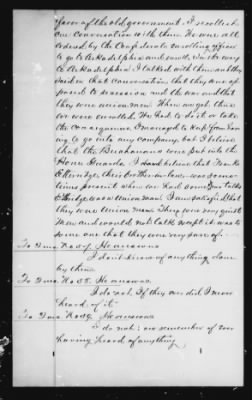 favor of the old government. I recollect
one conversation with them. We were all
ordered by the Confederate enrolling officer
to go to Arkadelphia and enroll, on the way
to Arkadelphia I talked with them and they
said in that conversation that they were op
posed to secession and the war and that
they were union men. When we got there
we were enrolled. We had to do it or take
the consequences. I managed to keep from hav
ing to go into any company, but I believe
that the were put into the
Home Guards. I also believe that Frank
their brother-in-law was some
times present when we had some talks
was a Union man. I am satisfied that
they were union men. They were very quiet
men and would not talk except it was to
some one that they were very sure of.
To Ques. No 37. He answers
I don't know of anything done
by them.
To Ques. No 38. He answers.
I do not. If they ever did I never
heard of it
To Ques. No 39. He answers
I do not: nor remember of ever
having heard of anything.